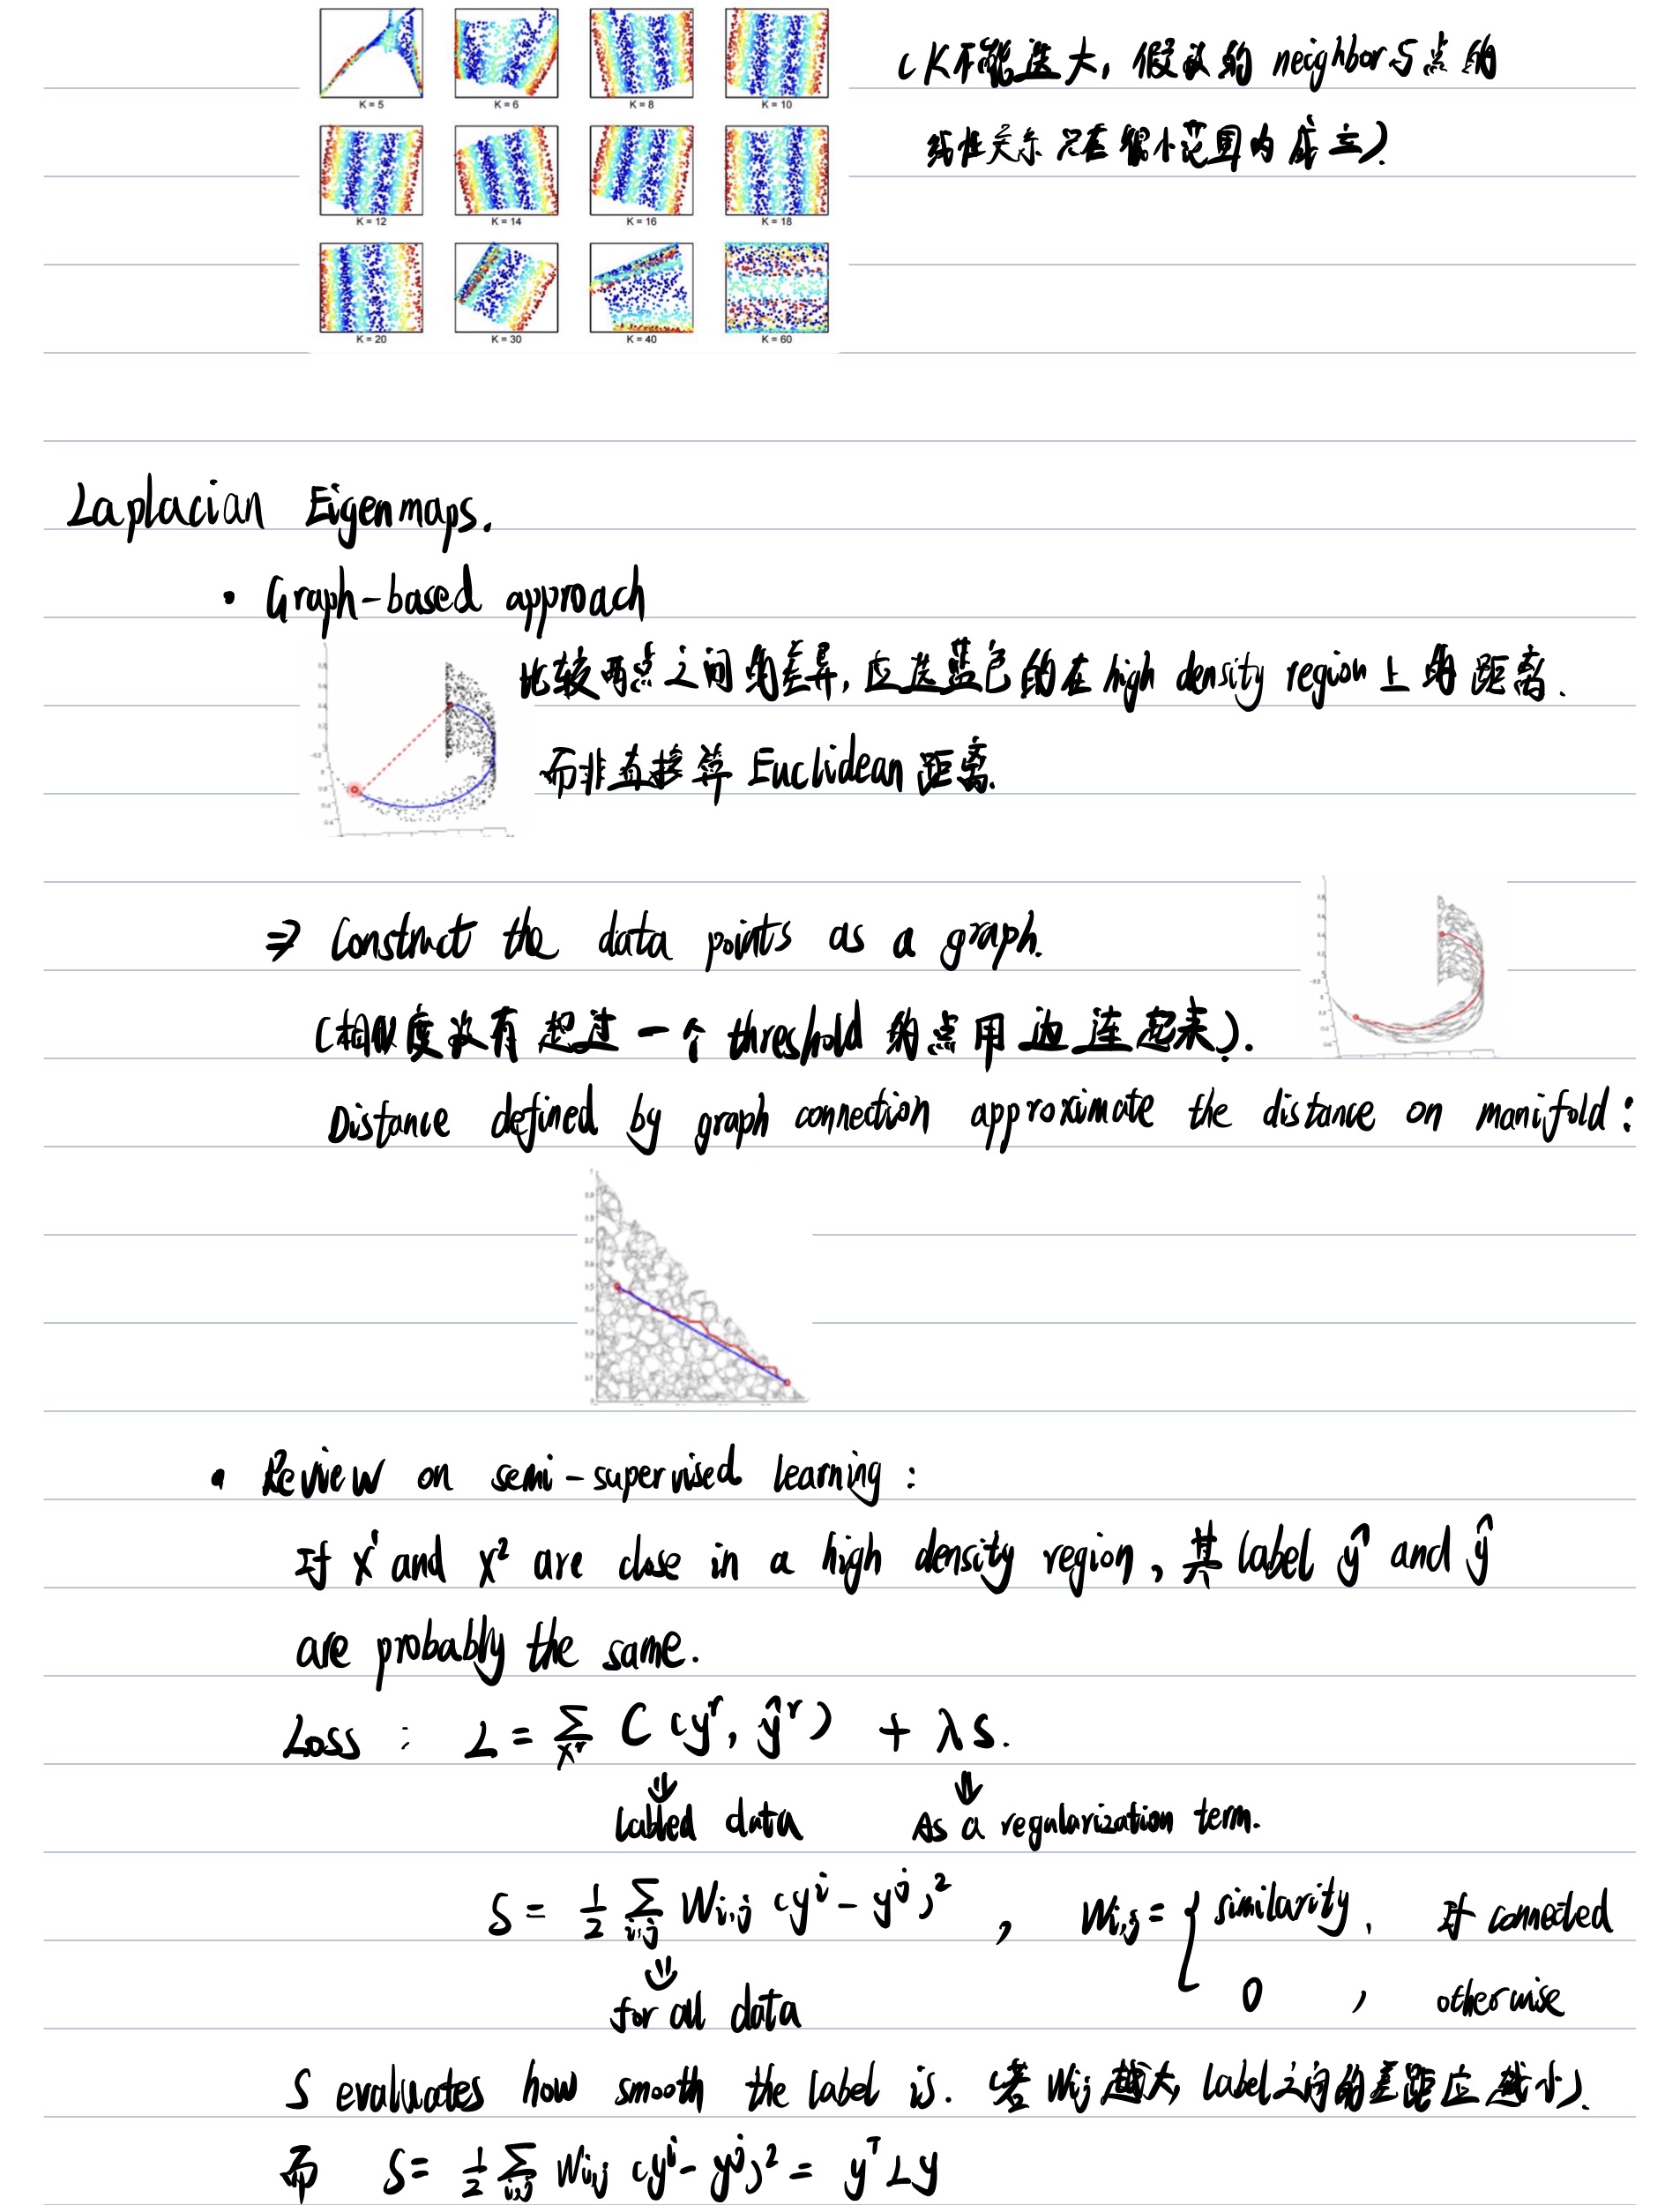 K = 5 K = 6 K = 8 K = 10
(K不能选大, 假设的 neighbor与点的
线性关系 只在很小范围内成立).
K = 12 K = 14 K = 16 K = 18
K = 20 K = 30 K = 40 K = 60
Laplacian Eigenmaps.
• Graph-based approach
比较两点之间的差异, 应选蓝色的在 high density region 上的距离.
而非直接算 Euclidean 距离.
⇒ Construct the data points as a graph.
(相似度没有超过一个 threshold 的点用边连起来).
Distance defined by graph connection approximate the distance on manifold:
• Review on semi-supervised learning:
If x¹ and x² are close in a high density region, 其 label ŷ¹ and ŷ
are probably the same.
Loss : L = ∑_{x^r} C(y^r, ŷ^r) + λS.
⇓ ⇓
labled data As a regularization term.
S = 1/2 ∑_{i,j} W_{i,j} (y^i - y^j)² , W_{i,j} = { similarity, If connected
⇓
for all data 0 , otherwise
S evaluates how smooth the label is. (若 Wij 越大, label之间的差距应越小).
而 S = 1/2 ∑_{i,j} W_{i,j} (y^i - y^j)² = y^T L y